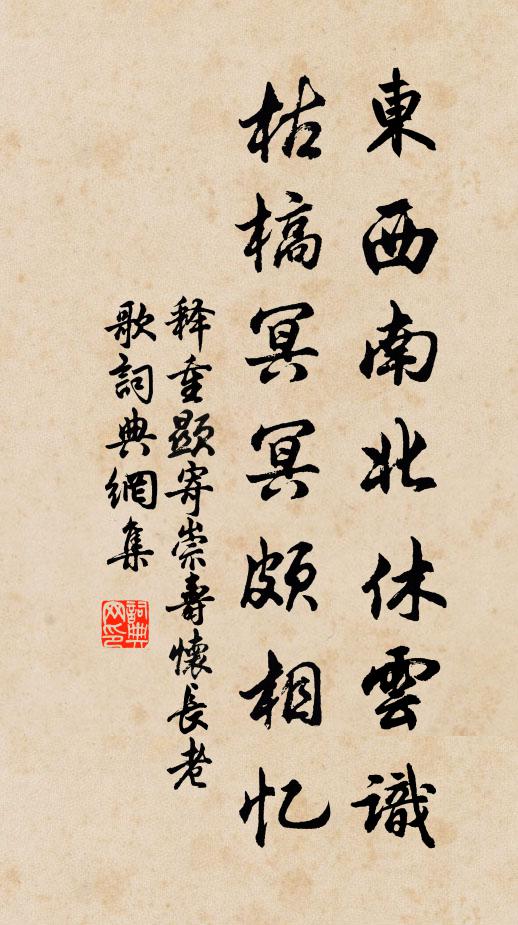 東西南北休雲識
枯槁冥冥頗相忆
释重顯寄崇壽懷長老
歌詞典網集
詞典网印